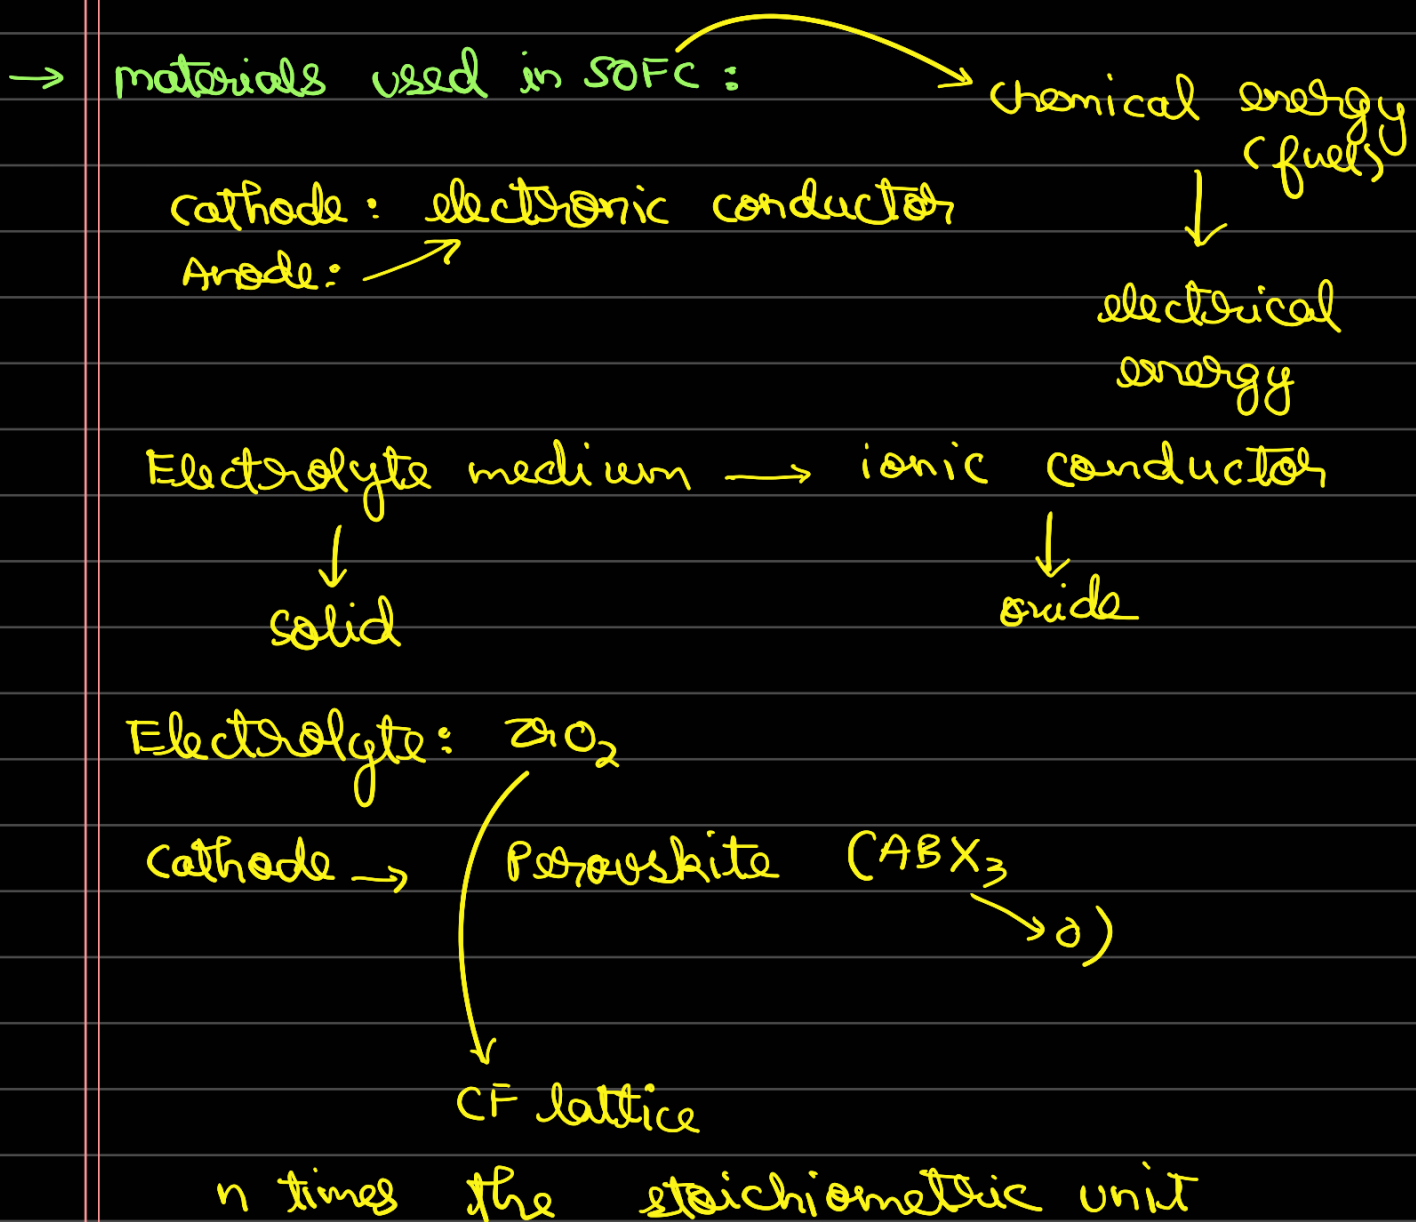 → materials used in SOFC :
chemical energy
(fuels)
↓
electrical
energy
cathode : electronic conductor
Anode :
Electrolyte medium → ionic conductor
↓ ↓
solid oxide
Electrolyte : ZrO₂
Cathode → Perovskite (ABX₃
→ O)
CF lattice
n times the stoichiometric unit